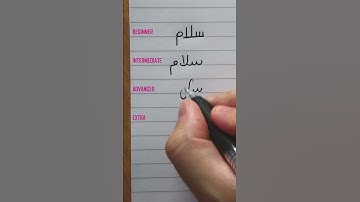 BEGINNER سلام
INTERMEDIATE سلام
ADVANCED
EXTRA